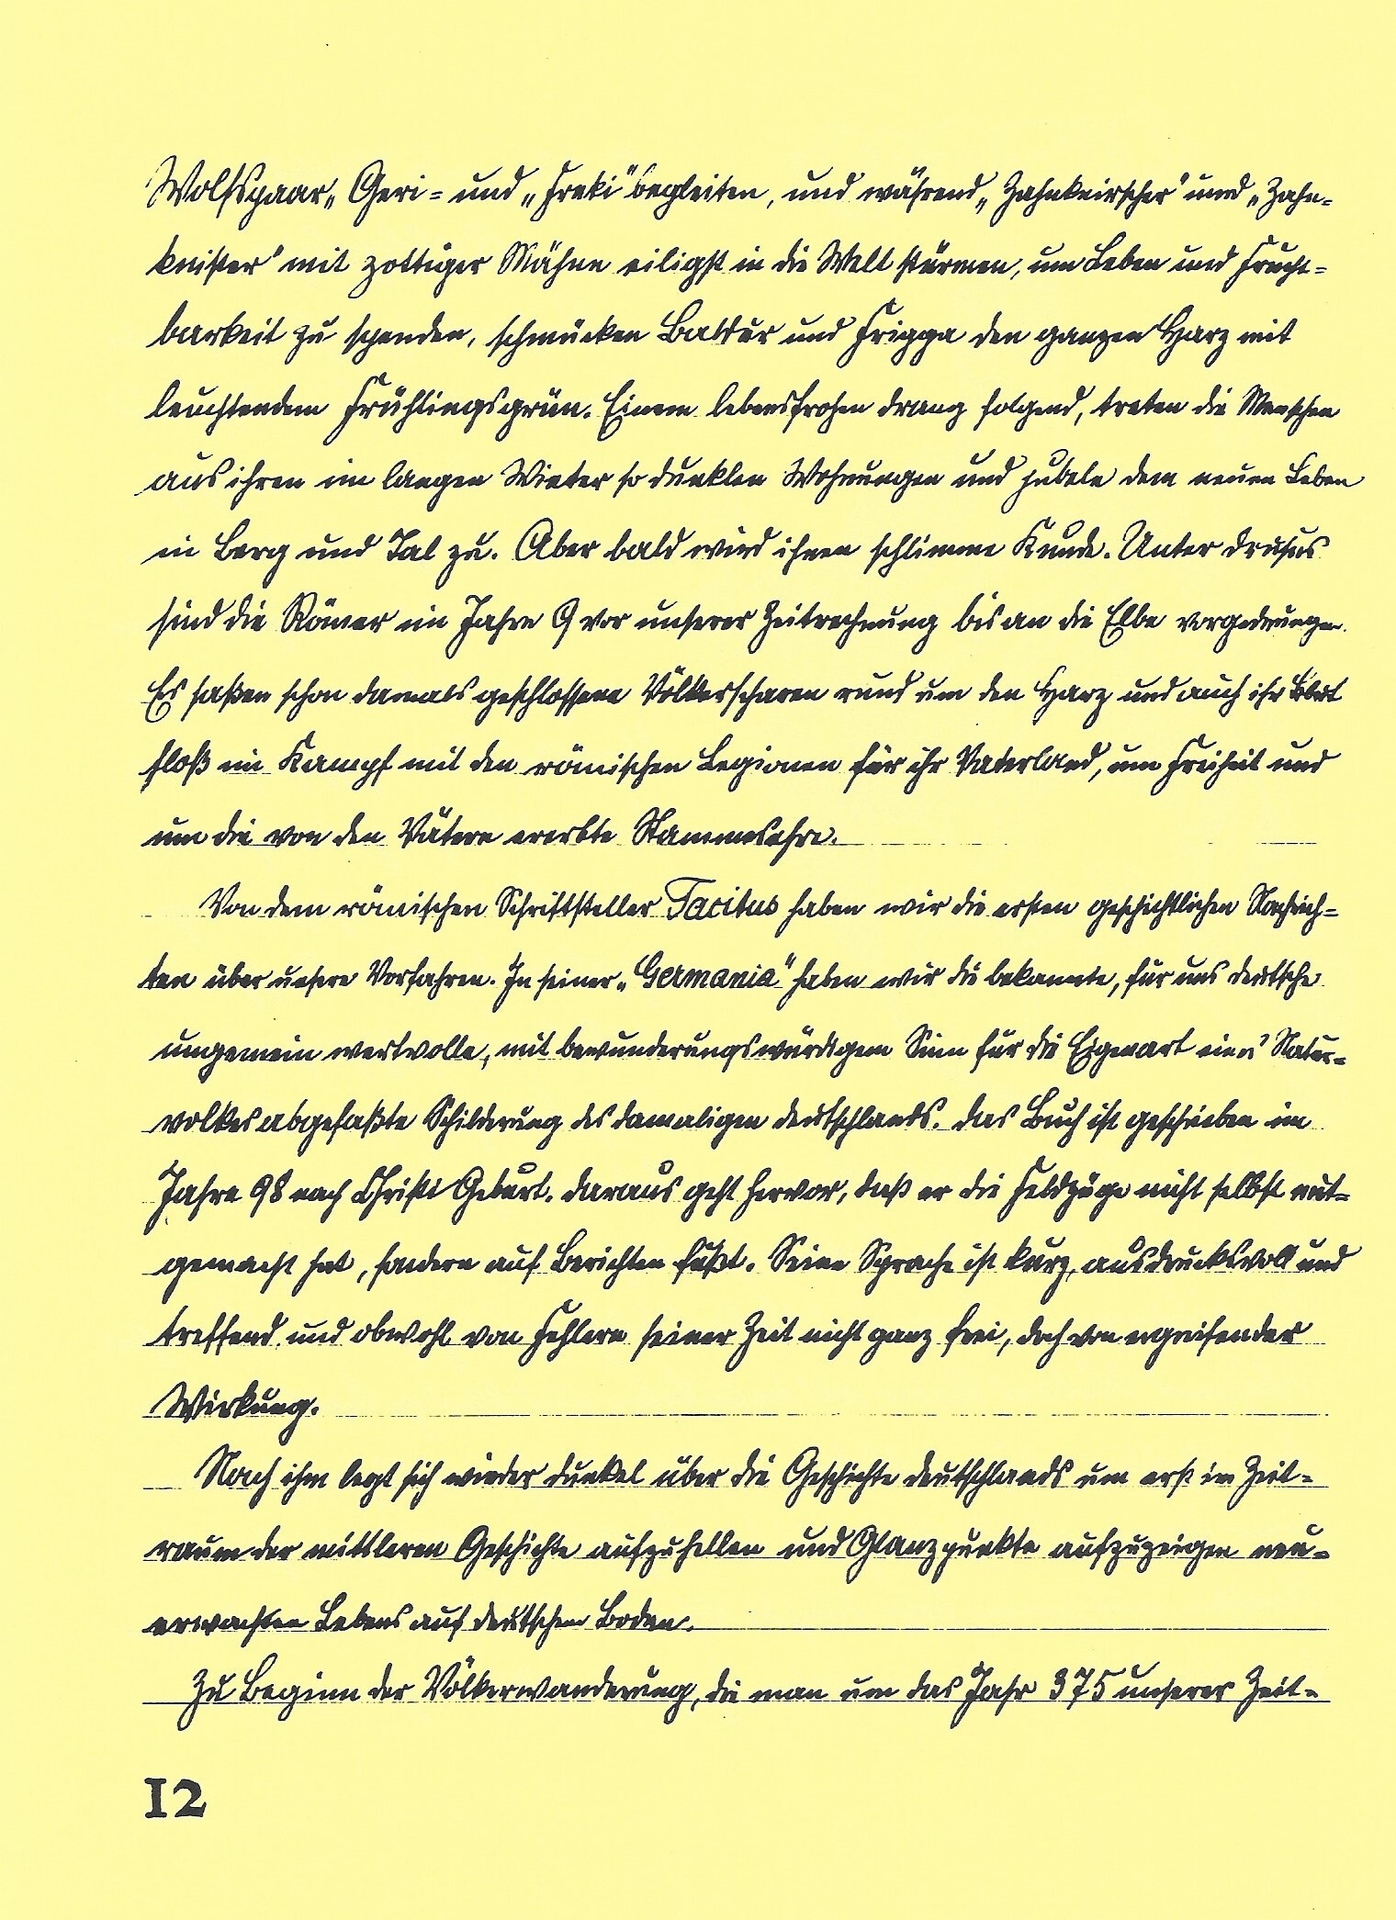 Wolfspaar „Geri= und „Freki" begleiten, und während „Zahnknirscher" und „Zahn=
knister" mit zottiger Mähne eiligst in die Welt stürmen, um Leben und Frucht=
barkeit zu spenden, schmücken Baldur und Frigga den ganzen Harz mit
leuchtendem Frühlingsgrün. Einem lebensfrohen Drang folgend, treten die Menschen
aus ihren im langen Winter so dunklen Wohnungen und jubeln dem neuen Leben
in Berg und Tal zu. Aber bald wird ihnen schlimme Kunde. Unter Drusus
sind die Römer im Jahre 9 vor unserer Zeitrechnung bis an die Elbe vorgedrungen.
Es saßen schon damals geschlossene Völkerscharen rund um den Harz und auch ihr Blut
floß im Kampf mit den römischen Legionen für ihr Vaterland, um Freiheit und
um die von den Vätern ererbte Stammesehre.
Von dem römischen Schriftsteller Tacitus haben wir die ersten geschichtlichen Nachrich=
ten über unsere Vorfahren. In seiner „Germania" haben wir die bekannte, für uns Deutsche
ungemein wertvolle, mit bewunderungswürdigem Sinn für die Eigenart eines Natur=
volkes abgefaßte Schilderung des damaligen Deutschlands. Das Buch ist geschrieben im
Jahre 98 nach Christi Geburt. Daraus geht hervor, daß er die Feldzüge nicht selbst mit=
gemacht hat, sondern auf Berichten fußt. Seine Sprache ist kurz, ausdrucksvoll und
treffend und obwohl von Fehlern seiner Zeit nicht ganz frei, doch von ergreifender
Wirkung.
Nach ihm legt sich wieder Dunkel über die Geschichte Deutschlands um erst im Zeit=
raum der mittleren Geschichte aufzuhellen und Glanzpunkte aufzuzeigen neu=
erwachten Lebens auf deutschem Boden.
Zu Beginn der Völkerwanderung, die man um das Jahr 375 unserer Zeit=
12